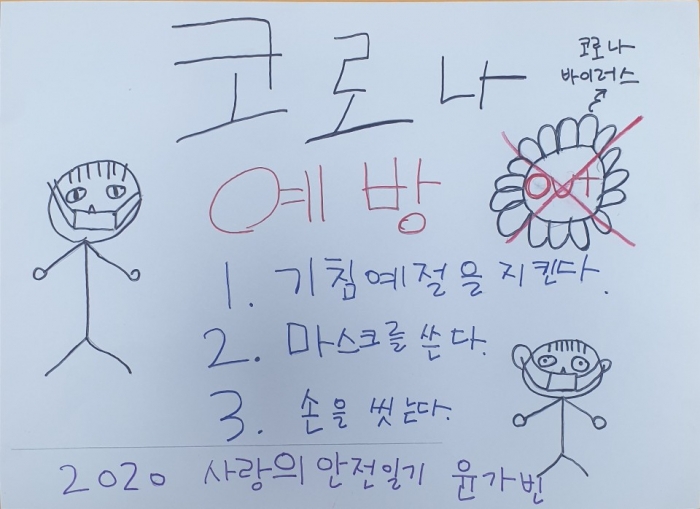 코로나
코로나
바이러스
예방
out
1. 기침예절을 지킨다.
2. 마스크를 쓴다.
3. 손을 씻는다.
2020 사랑의 안전일기 윤가빈